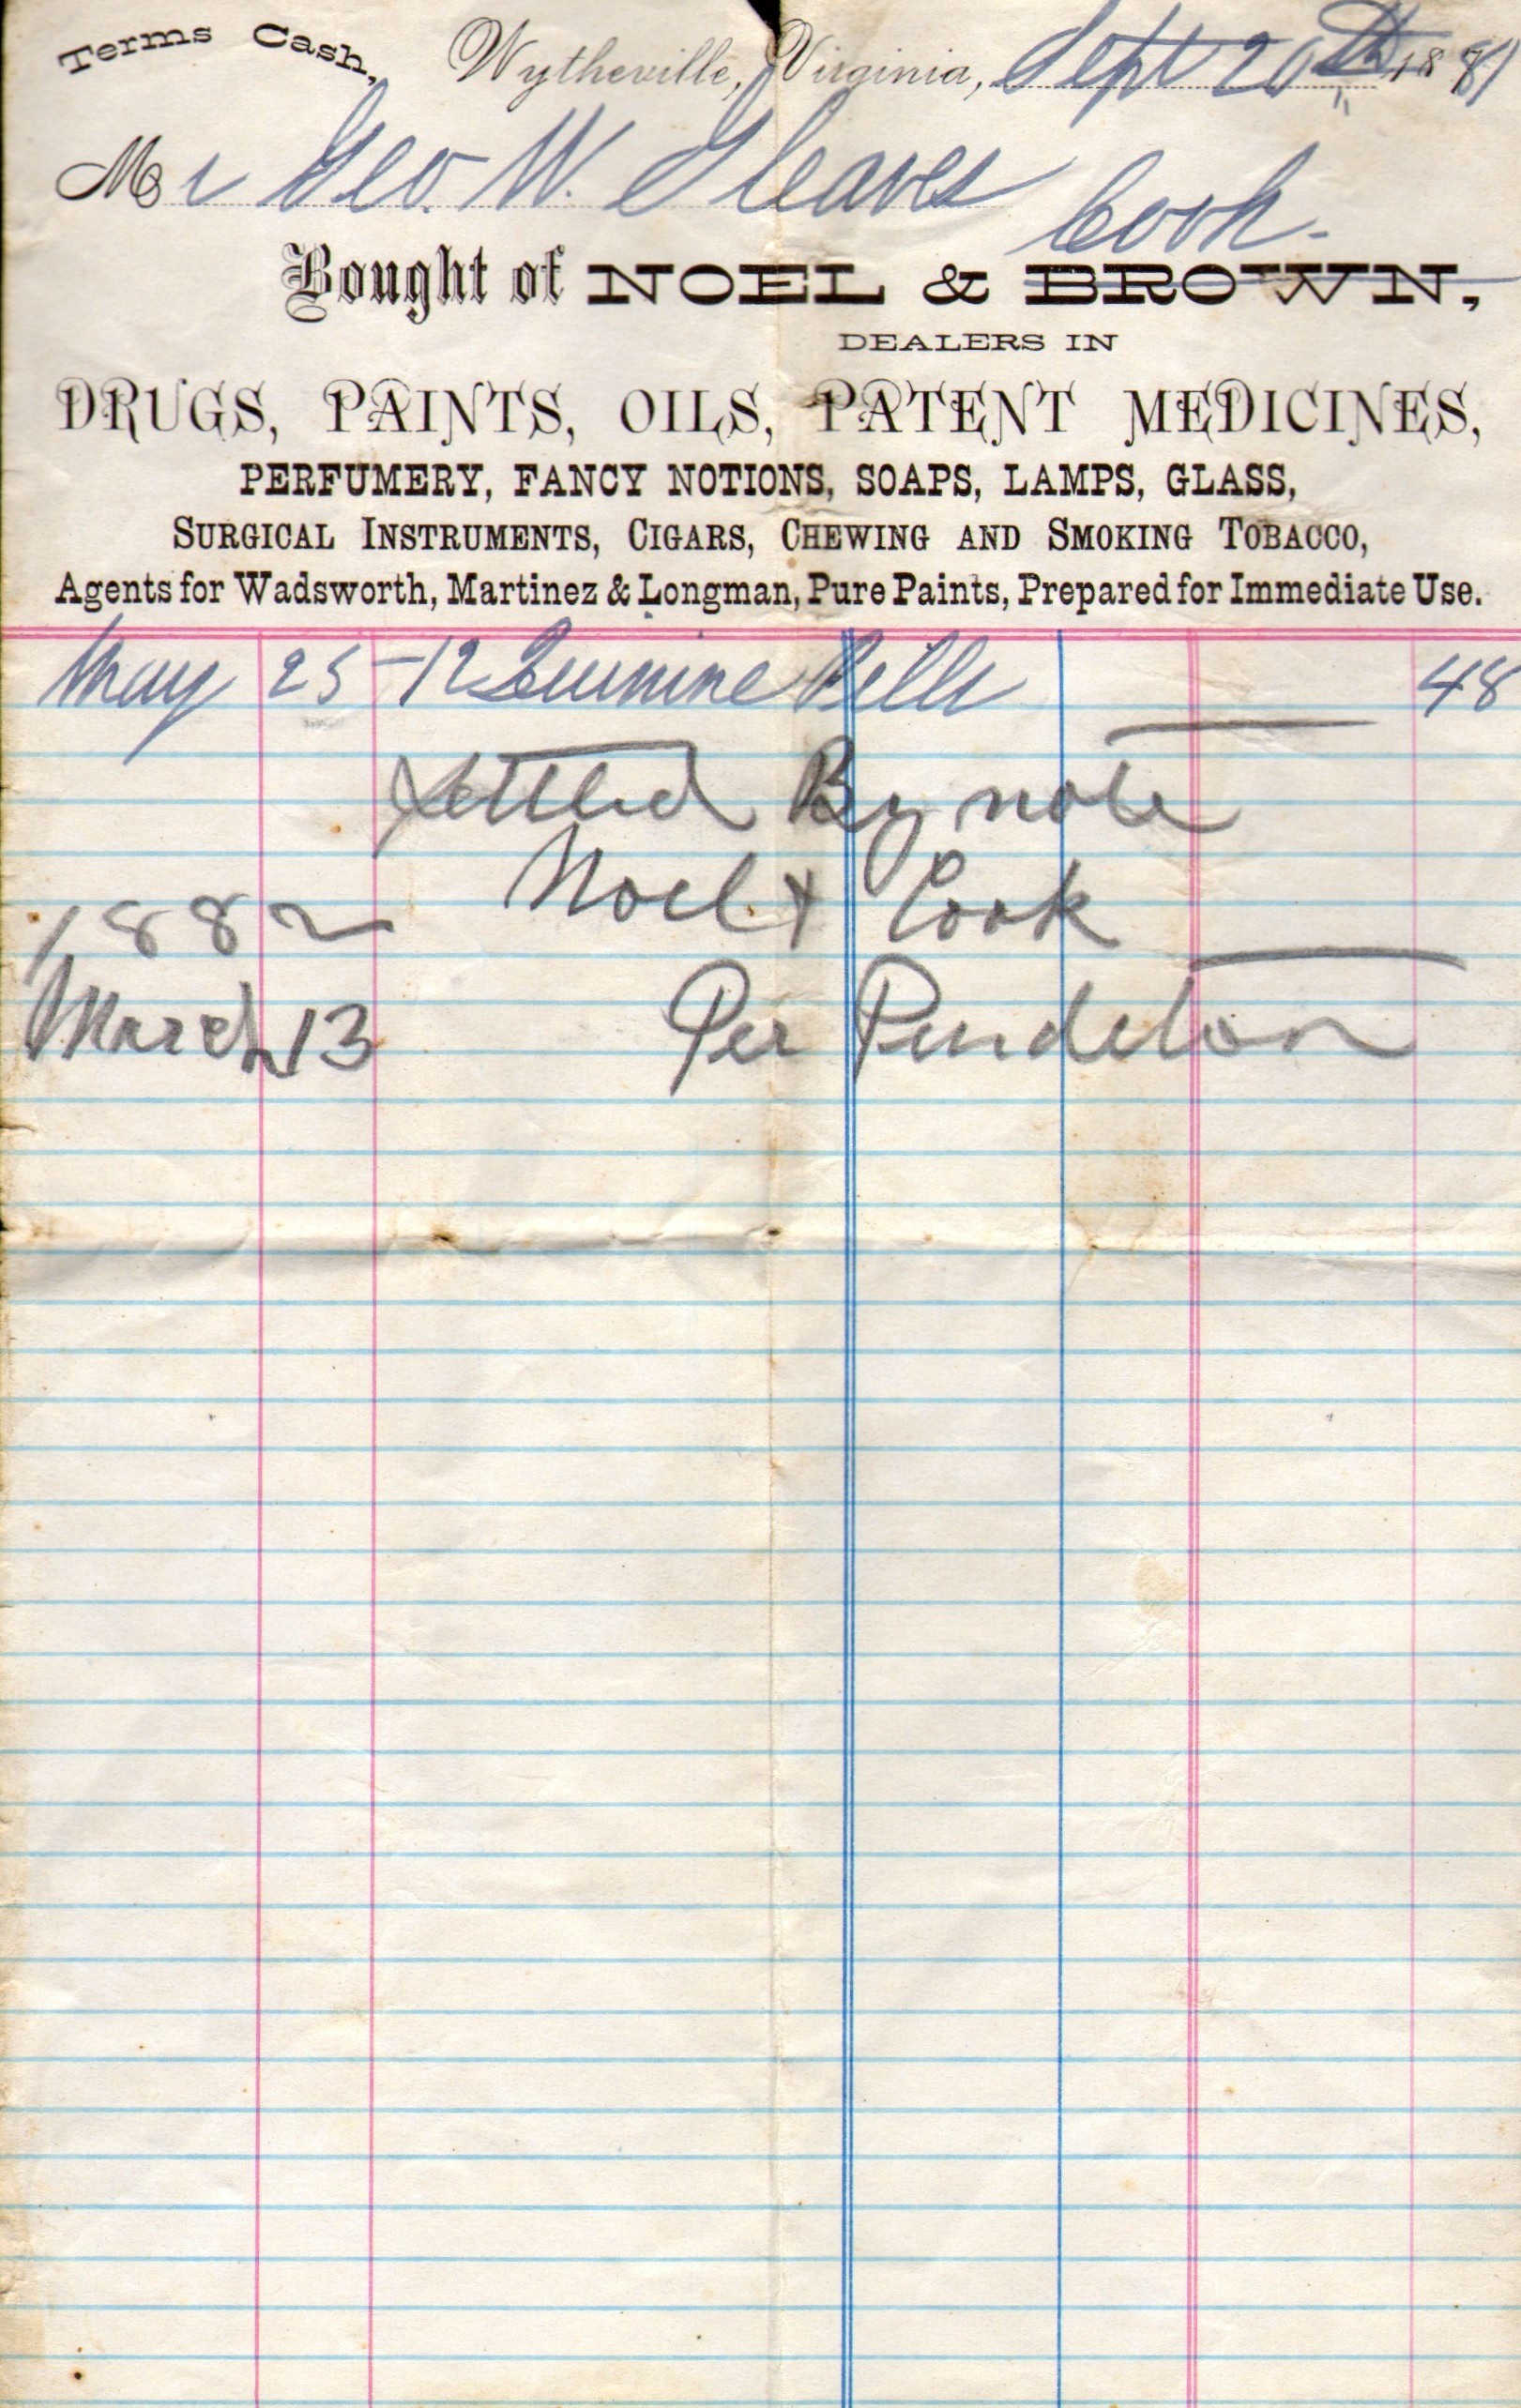 Terms Cash,
Wytheville, Virginia, Sept 20th 1881
Mr Geo. W. Gleaves
Cook.
Bought of NOEL & BROWN,
DEALERS IN
DRUGS, PAINTS, OILS, PATENT MEDICINES,
PERFUMERY, FANCY NOTIONS, SOAPS, LAMPS, GLASS,
SURGICAL INSTRUMENTS, CIGARS, CHEWING AND SMOKING TOBACCO,
Agents for Wadsworth, Martinez & Longman, Pure Paints, Prepared for Immediate Use.
May 25 - 12 Quinine Pills 48
Settled By note
Noel & Cook
1882
March 13 Per Pendleton